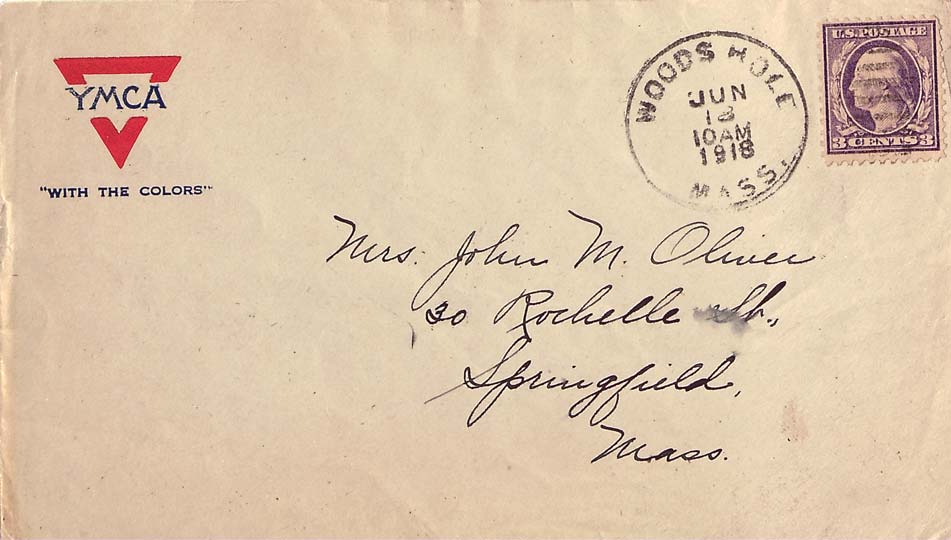 YMCA
"WITH THE COLORS"
WOODS HOLE
JUN
13
10 AM
1918
MASS.
U.S. POSTAGE
3 CENTS 3
Mrs. John M. Oliver
30 Rochelle St.,
Springfield,
Mass.